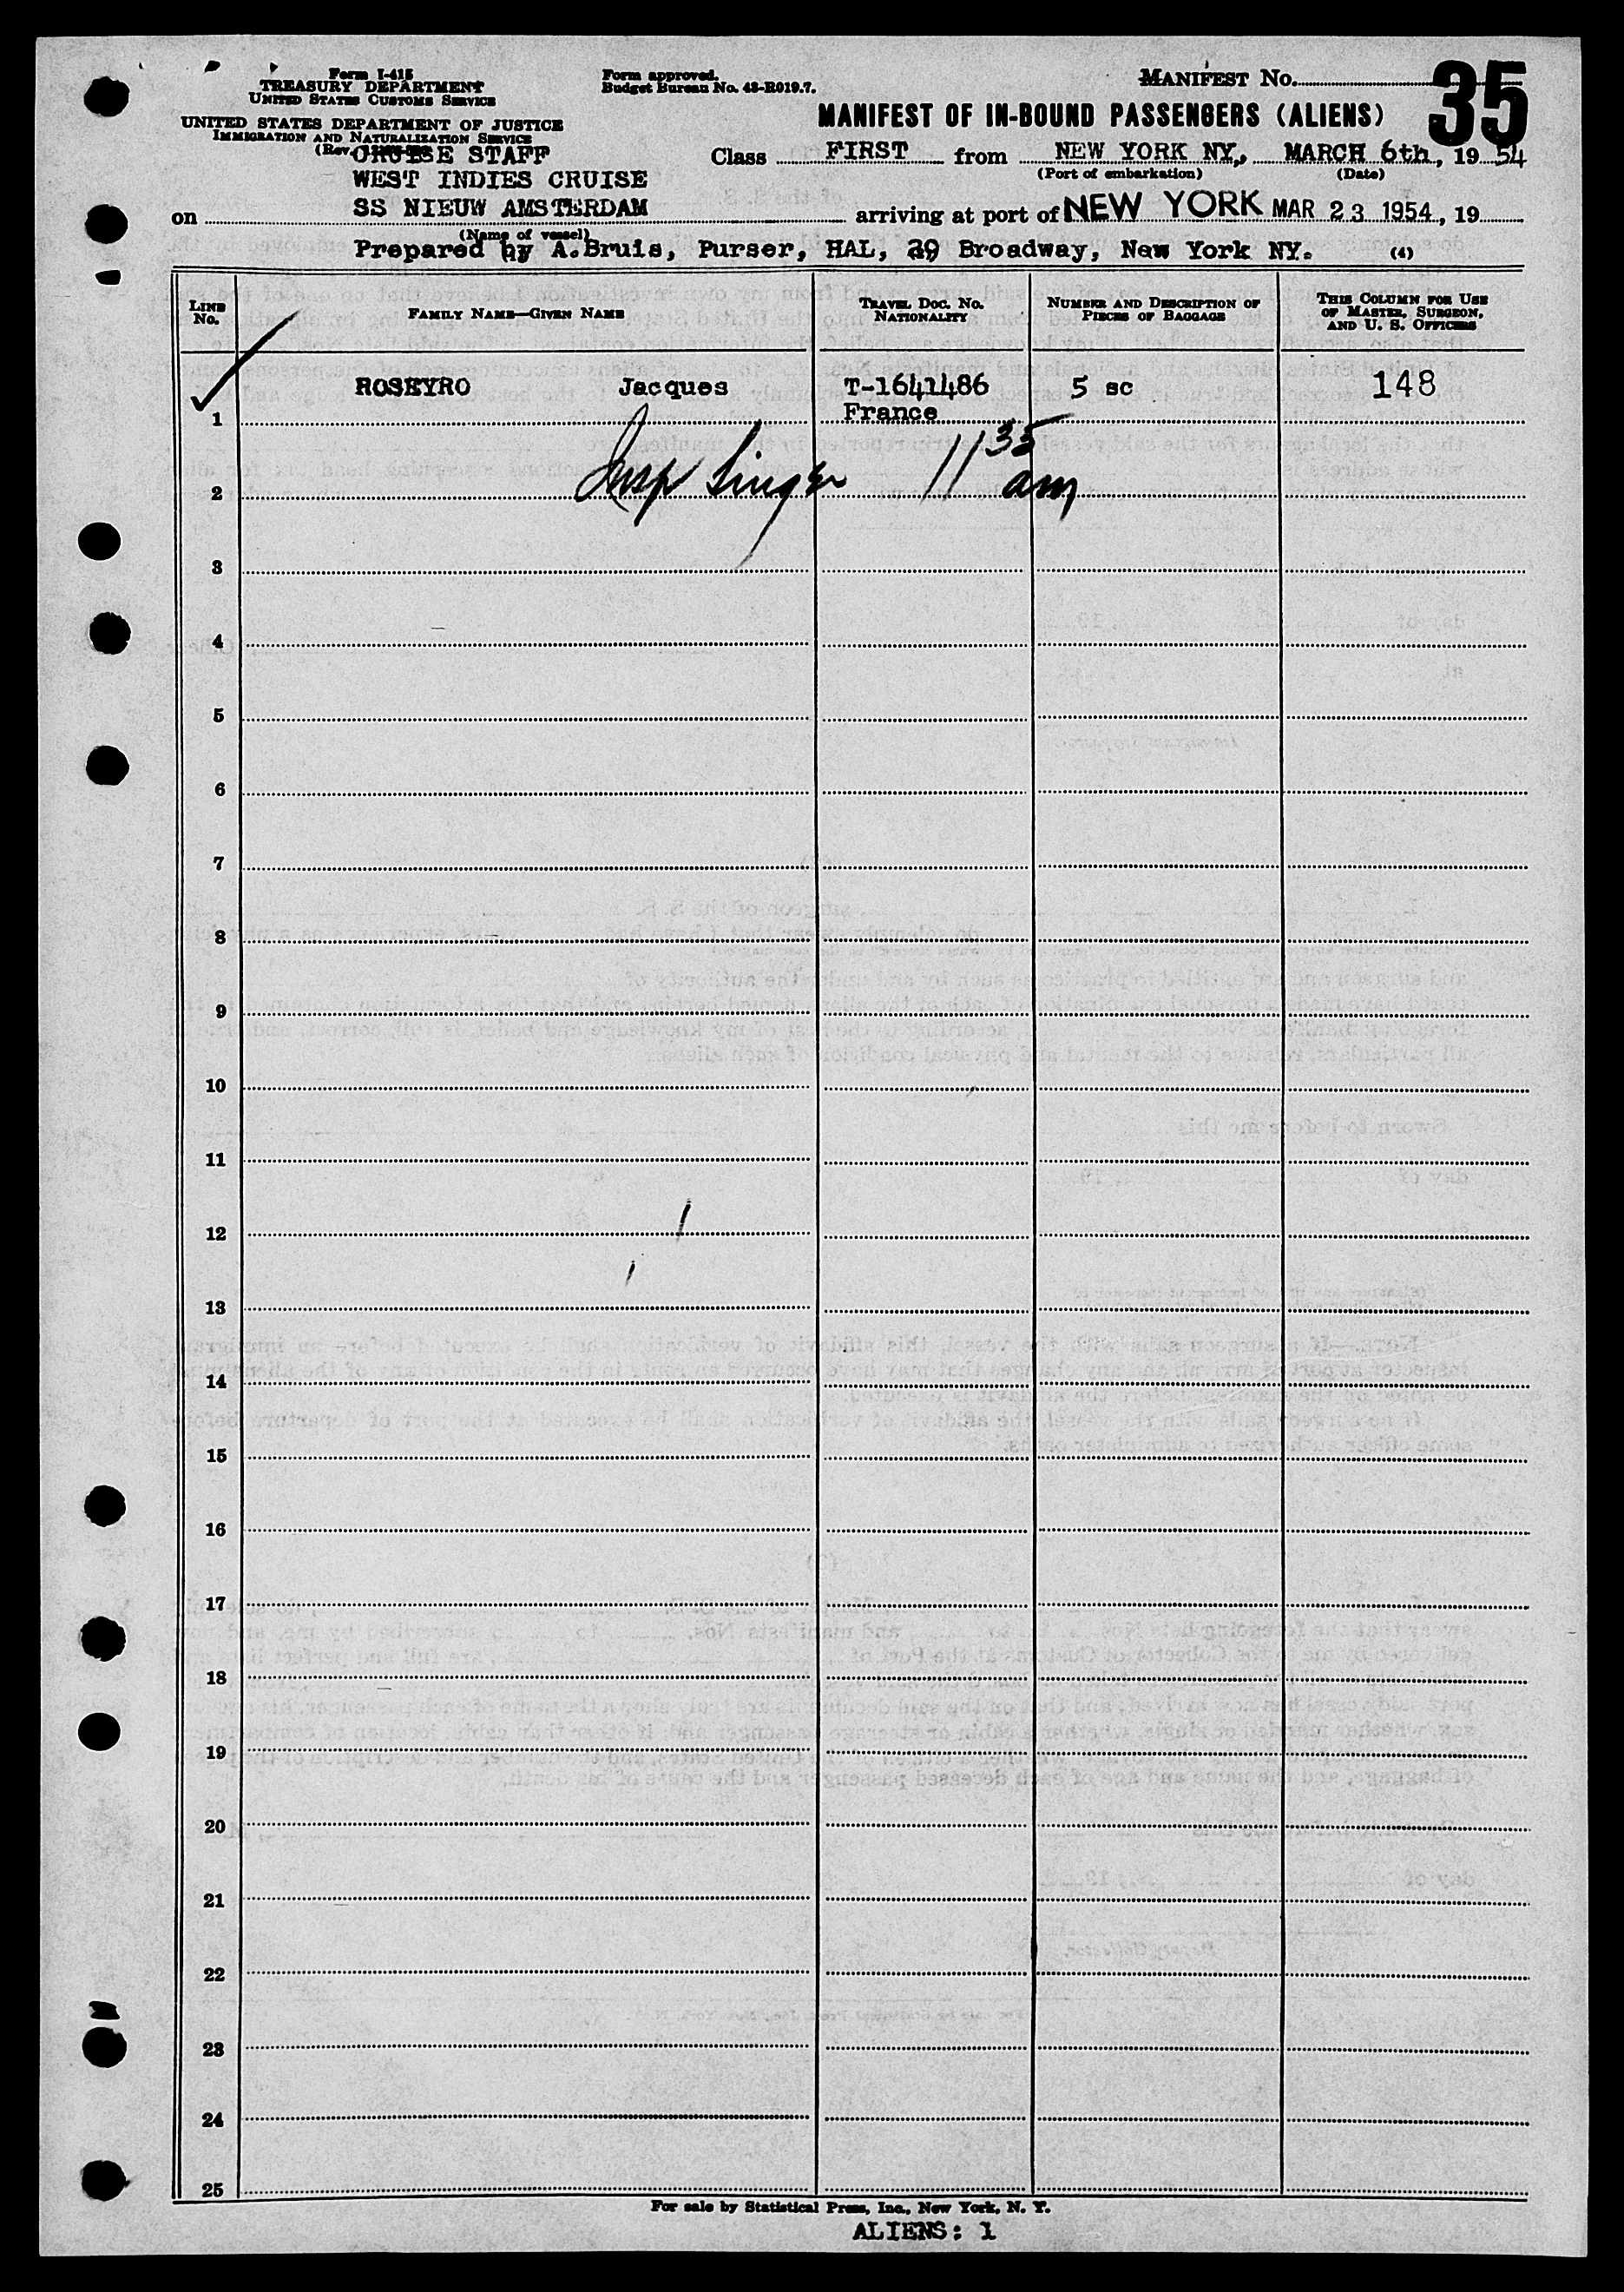 Form I-415
TREASURY DEPARTMENT
UNITED STATES CUSTOMS SERVICE
UNITED STATES DEPARTMENT OF JUSTICE
IMMIGRATION AND NATURALIZATION SERVICE
(Rev.
Form approved.
Budget Bureau No. 43-R019.7.
MANIFEST No. 35
MANIFEST OF IN-BOUND PASSENGERS (ALIENS)
CRUISE STAFF
Class FIRST from NEW YORK NY., MARCH 6th, 1954
(Port of embarkation) (Date)
WEST INDIES CRUISE
on SS NIEUW AMSTERDAM arriving at port of NEW YORK MAR 23 1954, 19
(Name of vessel)
Prepared by A.Bruis, Purser, HAL, 29 Broadway, New York NY. (4)
LINE No. FAMILY NAME—GIVEN NAME TRAVEL DOC. NO. NATIONALITY NUMBER AND DESCRIPTION OF PIECES OF BAGGAGE THIS COLUMN FOR USE OF MASTER, SURGEON, AND U. S. OFFICERS
ROSEYRO Jacques T-1641486 5 sc 148
1 France
2 Insp Singer 11 35 am
3
4
5
6
7
8
9
10
11
12
13
14
15
16
17
18
19
20
21
22
23
24
25
For sale by Statistical Press, Inc., New York, N. Y.
ALIENS: 1